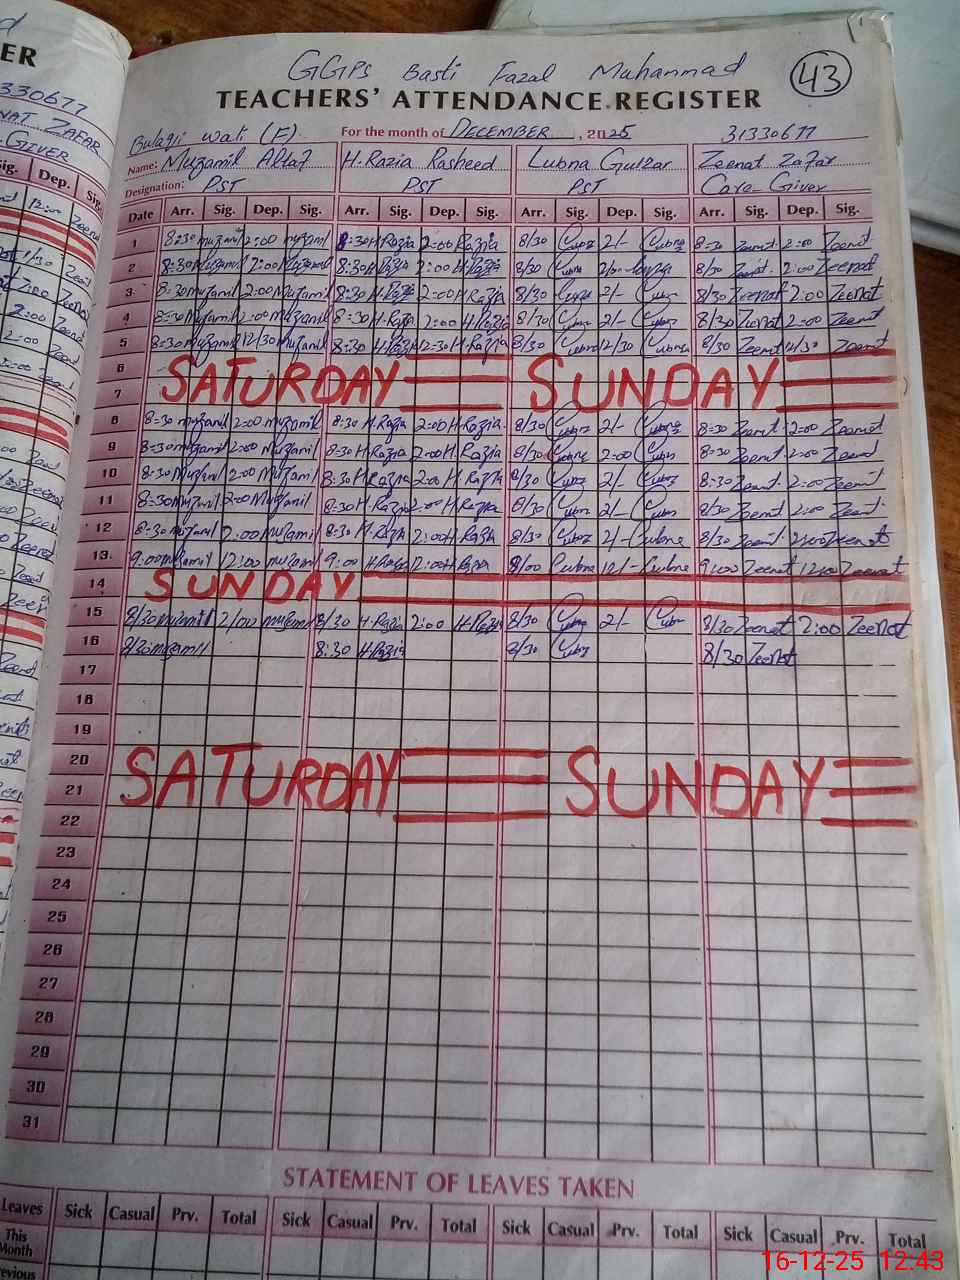 GGPS Basti Fazal Muhammad 43
TEACHERS' ATTENDANCE REGISTER
Bulaqi wali (F) For the month of DECEMBER, 2025 31330677
Name: Muzamil Altaf H.Razia Rasheed Lubna Gulzar Zeenat Zafar
Designation: PST PST PST Care Giver
Date Arr. Sig. Dep. Sig. Arr. Sig. Dep. Sig. Arr. Sig. Dep. Sig. Arr. Sig. Dep. Sig.
1 8:30 Muzamil 2:00 Muzamil 8:30 H.Razia 2:00 Razia 8/30 Lubna 2/- Lubna 8:30 Zeenat 2:00 Zeenat
2 8:30 Muzamil 2:00 Muzamil 8:30 H.Razia 2:00 H.Razia 8/30 Lubna 8/30 Zeenat 2:00 Zeenat
3 8:30 Muzamil 2:00 Muzamil 8:30 H.Razia 2:00 H.Razia 8/30 Lubna 2/- Lubna 8/30 Zeenat 2:00 Zeenat
4 8:30 Muzamil 2:00 Muzamil 8:30 H.Razia 2:00 H.Razia 8/30 Lubna 2/- Lubna 8/30 Zeenat 2:00 Zeenat
5 8:30 Muzamil 12/30 Muzamil 8:30 H.Razia 12:30 H.Razia 8/30 Lubna 12/30 Lubna 8/30 Zeenat Zeenat
6
SATURDAY SUNDAY
7
8 8:30 Muzamil 2:00 Muzamil 8:30 H.Razia 2:00 H.Razia 8/30 Lubna 2/- Lubna 8:30 Zeenat 2:00 Zeenat
9 8:30 Muzamil 2:00 Muzamil 8:30 H.Razia 2:00 H.Razia 8/30 Lubna 2:00 Lubna 8:30 Zeenat 2:00 Zeenat
10 8:30 Muzamil 2:00 Muzamil 8:30 H.Razia 2:00 H.Razia 8/30 Lubna 2/- Lubna 8:30 Zeenat 2:00 Zeenat
11 8:30 Muzamil 2:00 Muzamil 8:30 H.Razia 2:00 H.Razia 8/30 Lubna 2/- Lubna 8/30 Zeenat 2:00 Zeenat
12 8:30 Muzamil 2:00 Muzamil 8:30 H.Razia 2:00 H.Razia 8/30 Lubna 2/- Lubna 8/30 Zeenat 2:00 Zeenat
13 9:00 Muzamil 12:00 Muzamil 9:00 H.Razia 12:00 H.Razia Lubna 12/- Lubna 9:00 Zeenat 12:00 Zeenat
14 SUNDAY
15 8/30 Muzamil 2/00 Muzamil 8/30 H.Razia 2:00 H.Razia 8/30 Lubna 2/- Lubna 8/30 Zeenat 2:00 Zeenat
16 8/30 Muzamil 8:30 H.Razia 8/30 Lubna 8/30 Zeenat
17
18
19
20
SATURDAY SUNDAY
21
22
23
24
25
26
27
28
29
30
31
STATEMENT OF LEAVES TAKEN
Leaves Sick Casual Prv. Total Sick Casual Prv. Total Sick Casual Prv. Total Sick Casual Prv. Total
This Month
16-12-25 12:43